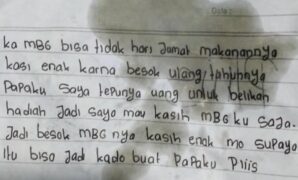 ka MBG bisa tidak hari Jamat makanannya
kasi enak karna besok ulang tahunnya
Papaku saya tepunya uang untuk belikan
hadiah Jadi saya mau kasih MBG ku saja.
Jadi besok MBG nya kasih enak mo supaya
itu bisa Jad kado buat Papaku Pliis